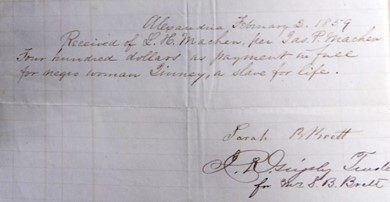 Alexandria February 2. 1859
Received of L. H. Machen, per Jas. P. Machen
Four hundred dollars as payment in full
for negro woman Jinney, a slave for life.
Sarah B Brett
J. R. Grigsby Trustee
for Mrs S. B. Brett